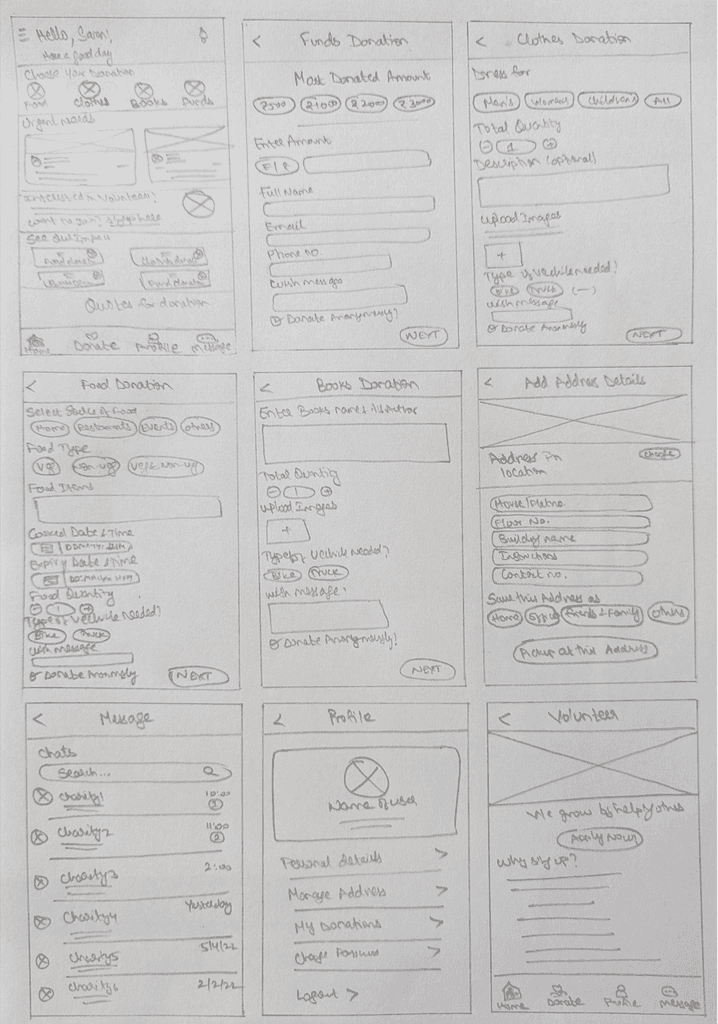 Hello, Saran!
Have a good day
Choose your Donation
Food Clothes Books Funds
Urgent Needs
Interested in Volunteer?
want to join?
See Our Impact
Quotes for donation
Home Donate Profile Message
< Funds Donation
Most Donated Amount
₹500 ₹1000 ₹2000 ₹3000
Enter Amount
Full Name
Email
Phone no.
wish message
Donate Anonymously?
NEXT
< Clothes Donation
Dress for
Men's Women's Children's All
Total Quantity
- 1 +
Description (optional)
Upload Images
+
Type of Vechile needed?
Bike Truck (—)
wish message
Donate Anonmosly
NEXT
< Food Donation
Select Source of Food
Home Restaurants Events others
Food Type
Veg Non-veg Veg & Non-veg
Food Items
Cooked Date & Time
Expiry Date & Time
Food Quantity
- 1 +
Type of Vechile Needed?
Bike Truck
wish message
Donate Anonmosly
NEXT
< Books Donation
Enter Books names /
Total Quntity
- 1 +
Upload Images
+
Type of Vechile needed?
Bike Truck
wish message.
Donate Anonymously?
NEXT
< Add Address Details
Address Pn
location
change
House/Flat no.
Floor No.
Building name
Instructions
Contact no.
Save this Address as
Home Office Friends & Family Others
Pickup at this Address
< Message
Chats
Search...
Charity1 10:00
2
Charity2 11:00
2
Charity3 2:00
Charity4 Yesterday
Charity5 5/4/22
Charity6 2/2/22
< Profile
Name of user
Personal details >
Manage Address >
My Donations >
Change Password >
Logout >
< Volunteer
We grow by helping others
Apply Now
Why sign up?
Home Donate Profile Message